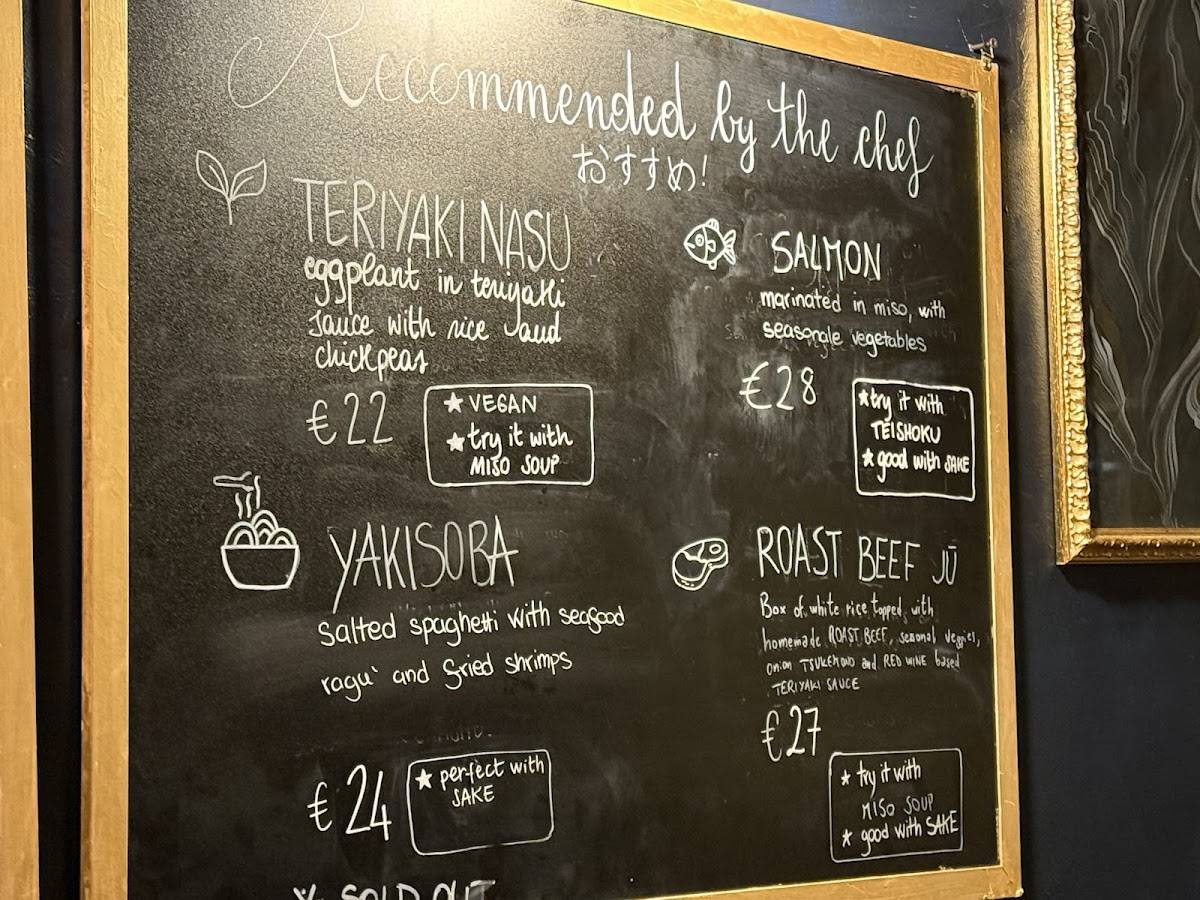 Recommended by the chef
おすすめ!
TERIYAKI NASU
eggplant in teriyaki
sauce with rice and
chickpeas
€22
★ VEGAN
★ try it with
MISO SOUP
YAKISOBA
Salted spaghetti with seafood
ragu' and fried shrimps
€24
★ perfect with
SAKE
SOLD OUT
SALMON
marinated in miso, with
vegetables
€28
★ try it with
TEISHOKU
★ good with SAKE
ROAST BEEF JŪ
Box of white rice topped with
homemade ROAST BEEF, seasonal veggies,
onion TSUKEMONO and RED WINE based
TERIYAKI SAUCE
€27
★ try it with
MISO SOUP
★ good with SAKE